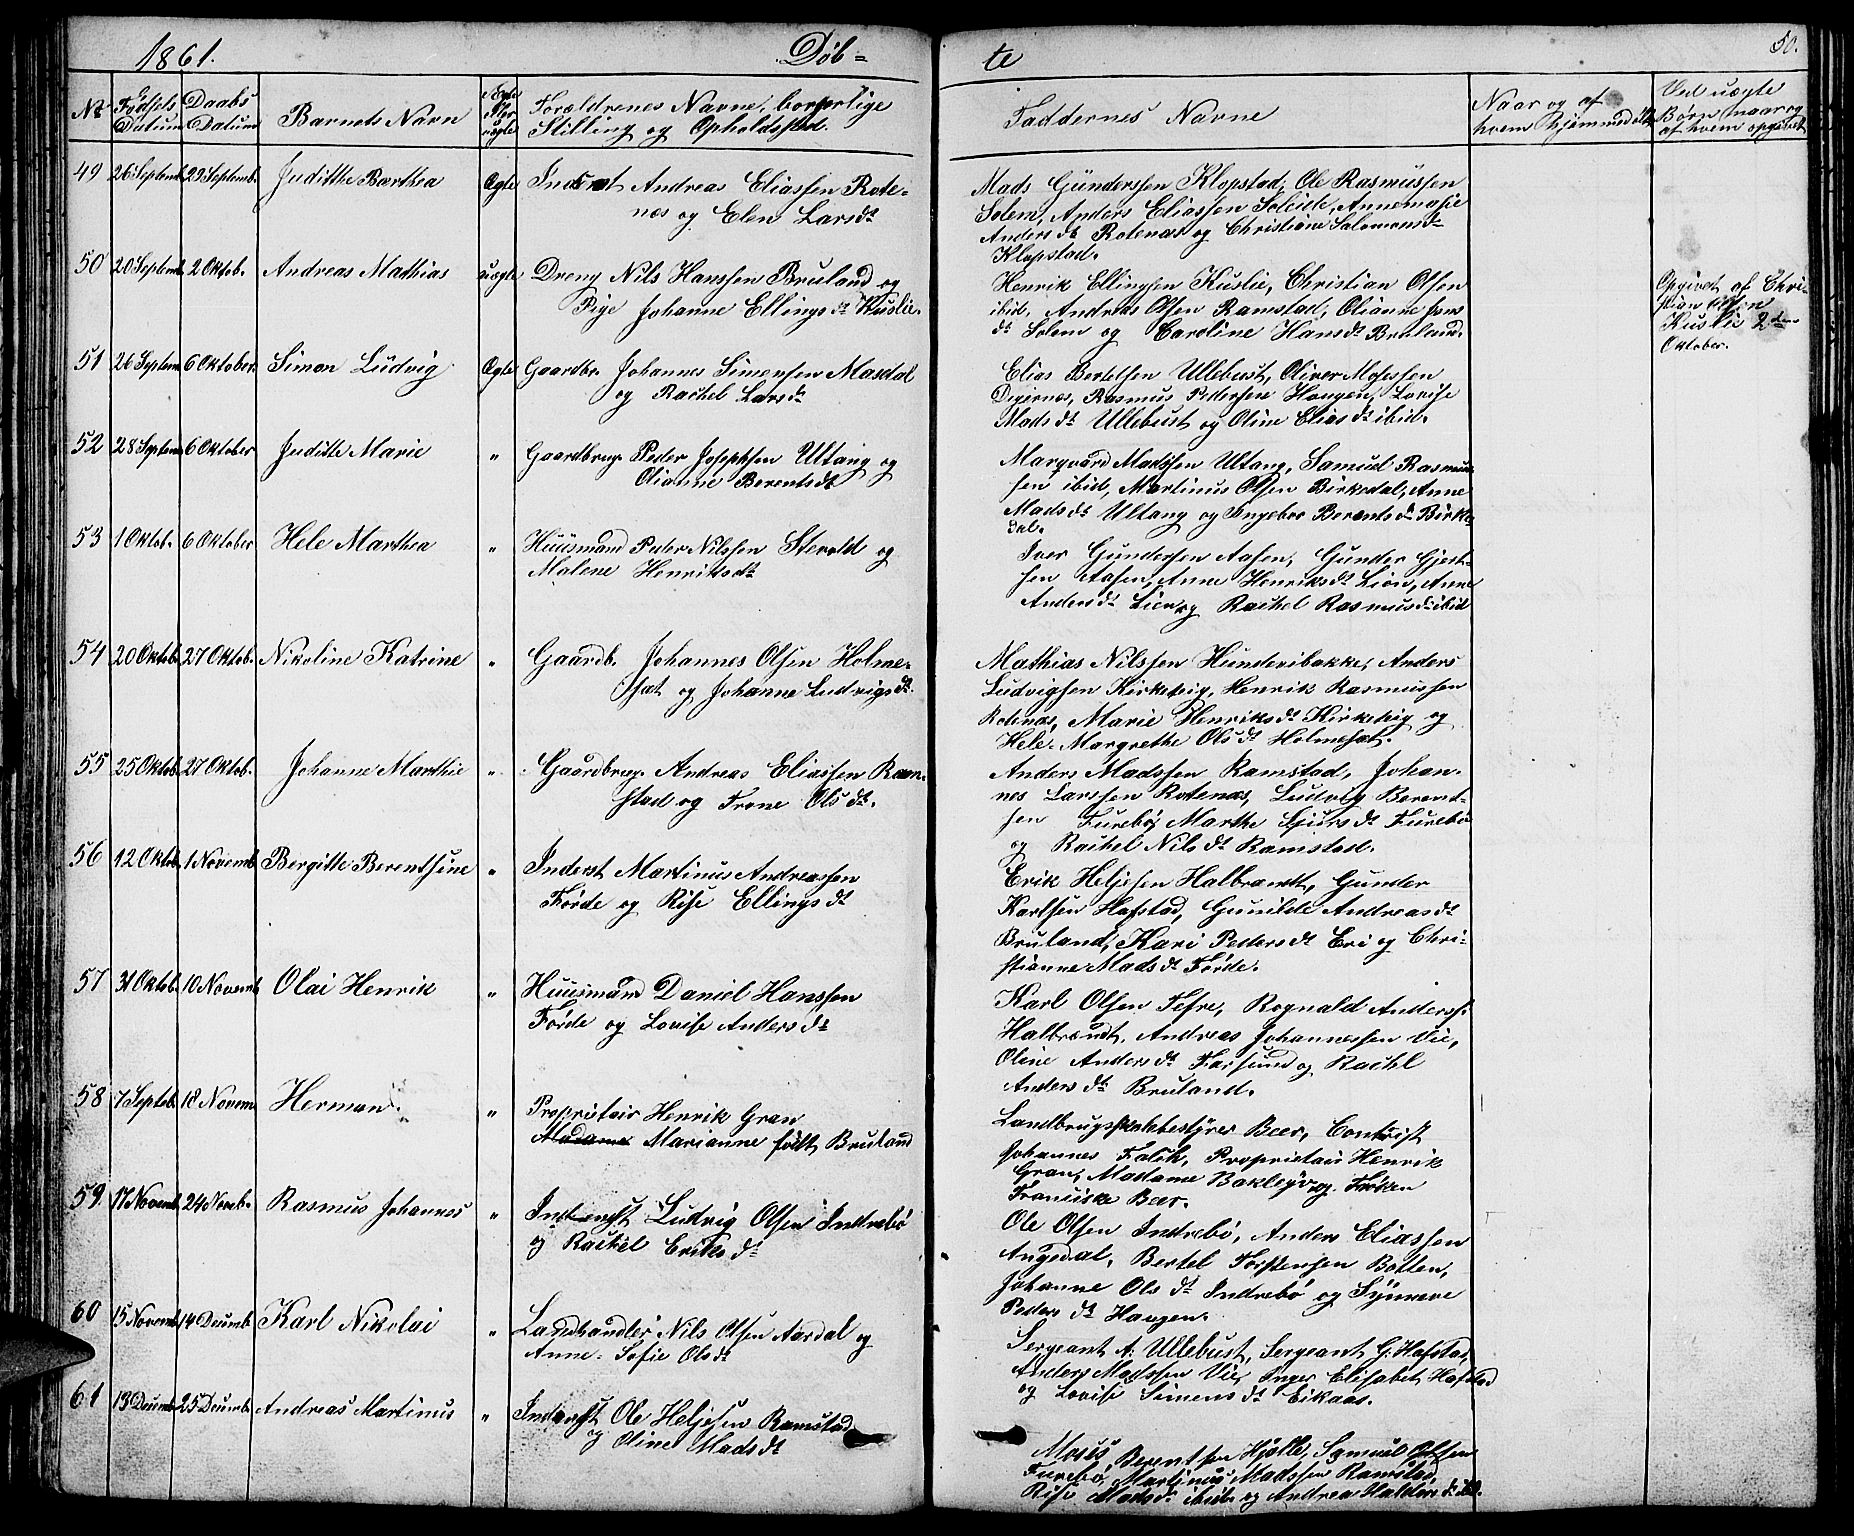 1861.
Döb=
te
50.
No
Fødsels
Datum
Daabs
Datum
Barnets Navn
Ægte
eller
uægte
Forældrenes Navne, borgerlige
Stilling og Opholdssted.
Faddernes Navne
Naar og af
hvem hjemmedöbt
Ved uægte
Børn, naar og
af hvem opgivet
49 26 Septemb. 29 Septemb. Judithe Barthea Ægte Inderst Andreas Eliassen Rote=
næs og Elen Larsdt
Mads Gunderssen Klopstad, Ole Rasmussen
Solem, Anders Eliassen Soleide, Annemarie
Andersdt Rotenæs og Christiane Salomonsdt
Klopstad.
50 20 Septemb. 2 Oktob. Andreas Mathias uægte Dreng Nils Hanssen Bruland og
Pige Johanne Ellingsdt Kuslie.
Henrik Ellingsen Kuslie, Christian Olsen
ibid, Andreas Olsen Ramstad, Olianne Jens
dt Solem og Caroline Hansdt Bruland.
Opgivet af Chri=
stian Olsen
Kuslie 2den
Oktober.
51 26 Septem 6 Oktober. Simon Ludvig Ægte Gaardbr. Johannes Simonsen Masdal
og Rachel Larsdt
Elias Bertelsen Ullebust, Oliver Mosessen
Digernæs, Rasmus Pedersen Haugen, Lovise
Madsdt Ullebust og Oline Eliasdt ibid.
52 28 Septem 6 Oktober Judithe Marie " Gaardbrug. Peder Josephsen Ultang og
Olianne Berentsdt
Marqvard Madssen Ultang, Samuel Rasmus=
sen ibid, Martinus Olsen Birkedal, Anne
Madsdt Ultang og Ingebor Berentsdt Birke
dal.
53 1 Oktob. 6 Oktober Hele Marthea " Huusmand Peder Nilssen Stevold og
Malene Henriksdt
Iver Gunderssen Aasen, Gunder Gjert=
sen Aasen, Anne Henriksdt Lien, Anne
Andersdt Lien og Rachel Rasmusdt ibid
54 20 Oktob. 27 Oktob. Nikoline Katrine " Gaardb. Johannes Olsen Holme=
sæt og Johanne Ludvigsdt.
Mathias Nilssen Hunderibakke, Anders
Ludvigsen Kirkebig, Henrik Rasmussen
Rotenæs, Marie Henriksdt Kirkebig og
Hele Margrethe Olsdt Holmesæt.
55 25 Oktob. 27 Oktob. Johanne Marthie " Gaardbrug. Andreas Eliassen Ram=
stad og Trone Olsdt.
Anders Madssen Ramstad, Johan=
nes Larssen Rotenæs, Ludvig Berent=
sen Furebø, Marthe Sjursdt Furebø
og Rachel Nilsdt Ramstad.
56 12 Oktob. 1 Novemb. Bergitte Berentsine " Inderst Martinus Andreassen
Förde og Rise Ellingsdt
Erik Heljesen Halbrandt, Gunder
Karlsen Hafstad, Gunilde Andreasdt
Bruland, Kari Pedersdt Eri og Chri=
stianne Madsdt Förde.
57 31 Oktob. 10 Novemb. Olai Henrik " Huusmand Daniel Hanssen
Förde og Lovise Andersdt
Karl Olsen Tefre, Rognald Anderss.
Halbrandt, Andreas Johannessen Vie,
Oline Andersdt Farsund og Rachl
Andersdt Bruland.
58 7 Septob. 18 Novem Herman. " Proprietair Henrik Gran
Madame Marianne født Bruland
Landbrugsskolebestyrer Beer, Contrist
Johannes Falck, Proprietair Henrik
Gran, Madame Bakleyv og Frøken
Franciske Beer.
59. 17 Novemb. 24 Novemb. Rasmus Johannes " Inderst Ludvig Olsen Indrebö
og Rachel Eriksdt
Ole Olsen Indrebö, Anders Eliassen
Angedal, Bertel Torstensen Botten,
Johanne Olsdt Indrebö og Synneve
Pedersdt Haugen.
60 15 Novemb. 14 Decemb. Karl Nikolai " Landhandler Nils Olsen Aardal og
Anne-Sofie Olsdt
Sergeant A. Ullebust, Sergeant G. Hafstad,
Anders Madssen Vie, Inger Elisabet Hafstad
og Lovise Simensdt Eikaas.
61 13 Decemb. 25 Decemb. Andreas Martinus " Inderst Ole Heljesen Ramstad
og Oline Madsdt
Moses Berentsen Hjelle, Samuel Olsen
Furebø, Martinus Madssen Ramstad,
Rise Madsdt ibid og Andrea Haldorsdt ibid.